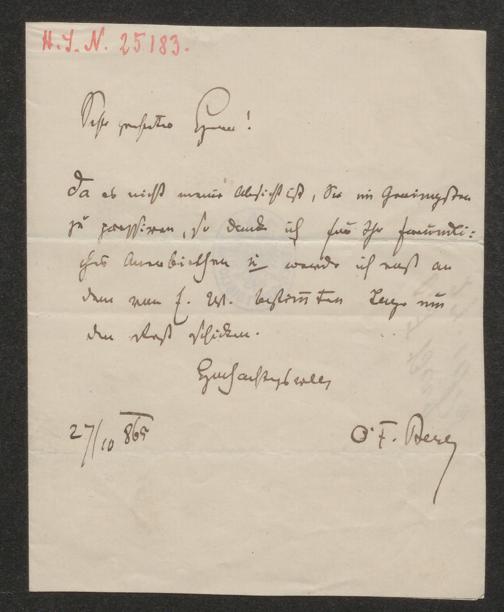 H.I.N. 25183.
Sehr geehrter Herr!
Da es nicht meine Absicht ist, Sie im Geringsten
zu pressiren, so danke ich für Ihr freundli=
ches Anerbiethen u werde ich erst an
dem von E. W. bestimmten Tage um
den Rest schicken.
Hochachtungsvoll
27/10 865
O. F. Berg